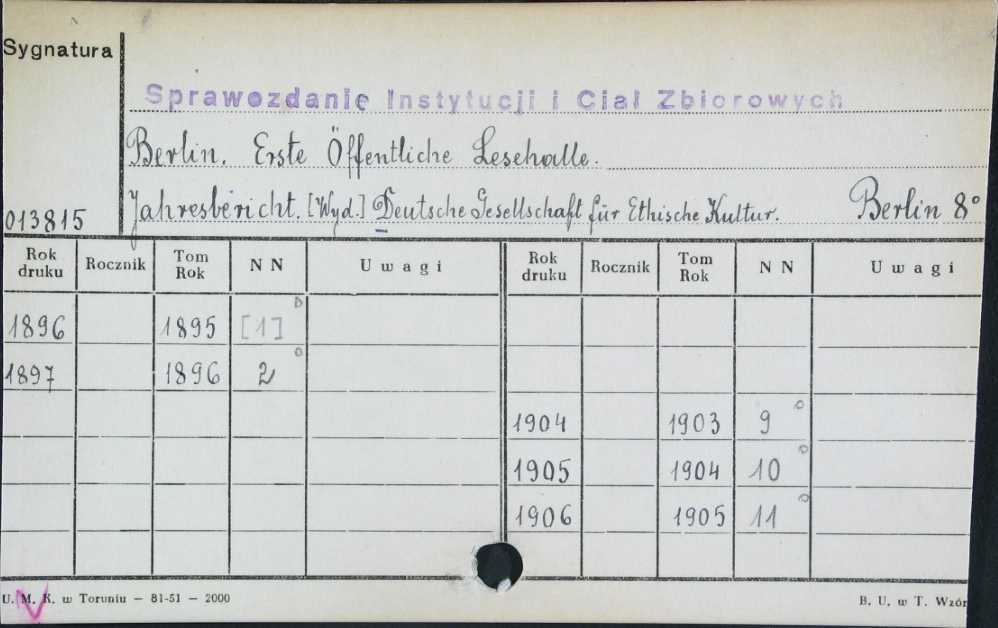 Sygnatura
Sprawozdanie Instytucji i Ciał Zbiorowych
Berlin. Erste Öffentliche Lesehalle.
013815 Jahresbericht. [Wyd.] Deutsche Gesellschaft für Ethische Kultur. Berlin 8°
Rok druku Rocznik Tom Rok N N Uwagi Rok druku Rocznik Tom Rok N N Uwagi
1896 1895 [1]
1897 1896 2
1904 1903 9
1905 1904 10
1906 1905 11
U. M. K. w Toruniu — 81-51 — 2000 B. U. w T. Wzór